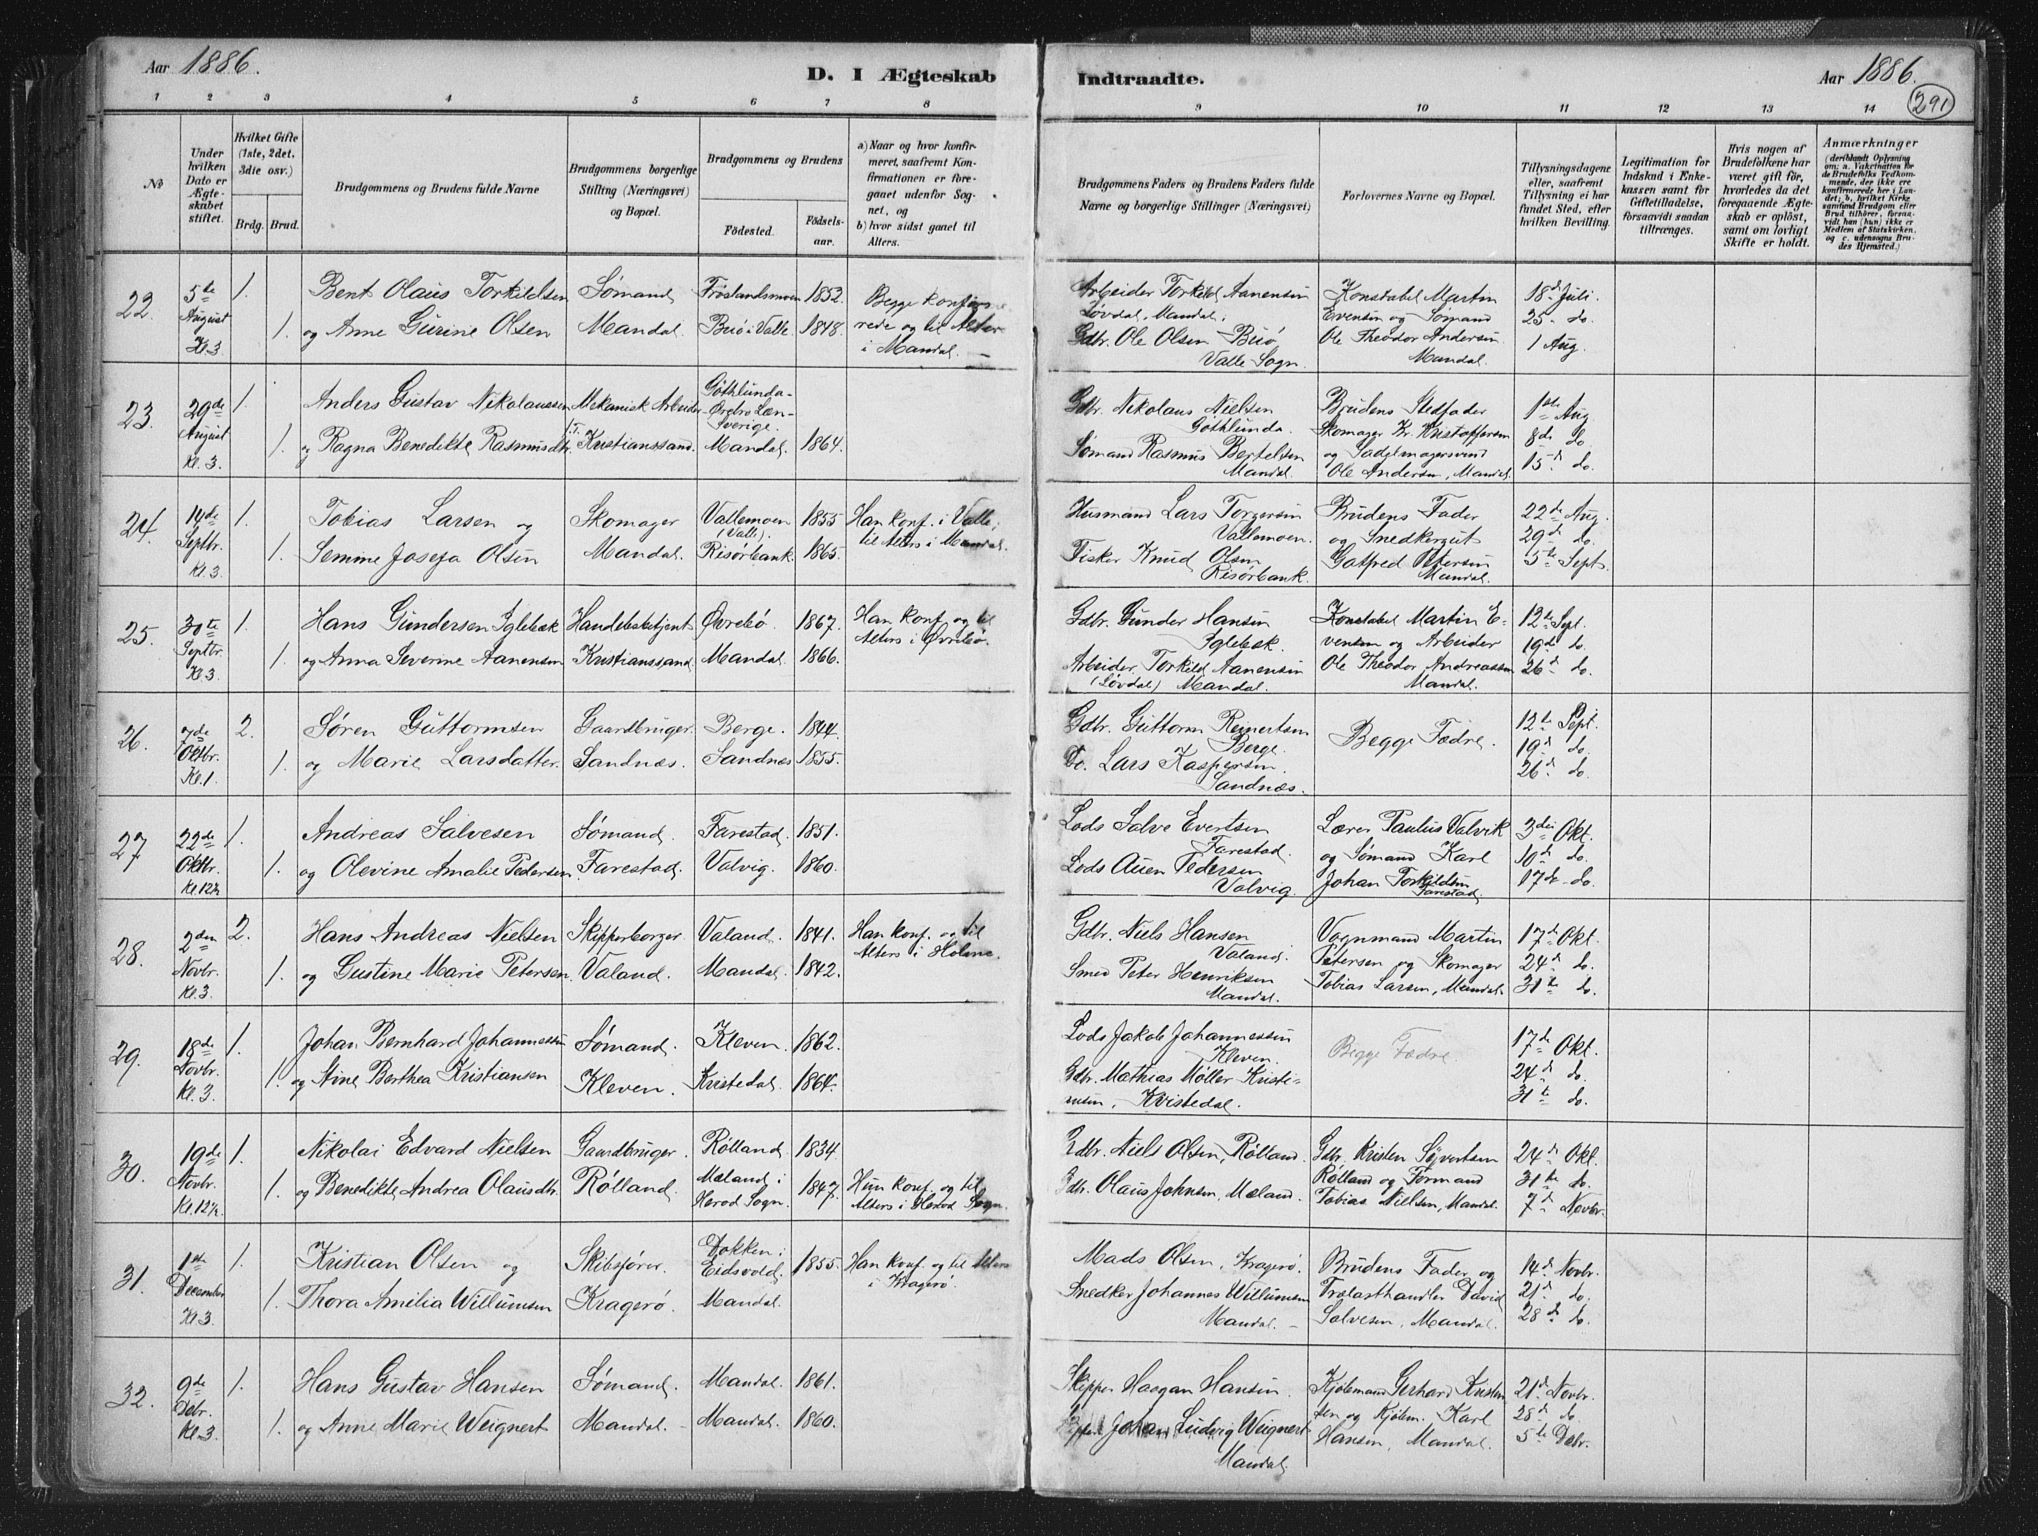 Aar 1886.
D. I Ægteskab
Indtraadte.
Aar 1886.
291
1 2 3 4 5 6 7 8
9 10 11 12 13 14
№
Under hvilken Dato er Ægteskabet stiftet.
Hvilket Gifte (1ste, 2det, 3die osv.)
Brdg. Brud.
Brudgommens og Brudens fulde Navne
Brudgommens borgerlige Stilling (Næringsvei) og Bopæl.
Brudgommens og Brudens
Födested.
Födsels-aar.
a) Naar og hvor konfirmeret, saafremt Konfirmationen er foregaaet udenfor Sognet, og
b) hvor sidst gaaet til Alters.
Brudgommens Faders og Brudens Faders fulde Navne og borgerlige Stillinger (Næringsvei)
Forlovernes Navne og Bopæl.
Tillysningsdagene eller, saafremt Tillysning ei har fundet Sted, efter hvilken Bevilling.
Legitimation for Indskud i Enkekassen samt for Giftetilladelse, forsaavidt saadan tiltrænges.
Hvis nogen af Brudefolkene har været gift för, hvorledes da det foregaaende Ægteskab er oplöst, samt om lovligt Skifte er holdt.
Anmærkninger
22. 5te August Kl. 3 1. Bent Olaus Torkildsen Sømand Frøslandsmoen 1852. Begge konfir-
1. og Anne Gurine Olsen Mandal. Buø i Valle 1848. rede og til Alters
i Mandal.
Arbeider Torkild Aanensen Konstabel Martin 18de Juli.
Løvdal, Mandal. Evensen og Sømand 25. do.
Gdbr. Ole Olsen Buø Ole Theodor Andersen 1 Aug.
Valle Sogn. Mandal.
23. 29de August Kl. 3. 1. Anders Gustav Nikolaussen Mekanisk Arbeider Gøthlunda-
Ørebro Læn-
Sverige.
1. og Ragna Benedikte Rasmusdtr. Kristianssand. Mandal. 1864.
Gdbr. Nikolaus Nielsen Brudens Stedfader 1ste Aug
Gøthlunda. Skomager Kr. Kristoffersen 8de do
Sømand Rasmus Bertelsen og Sadelmagersvend 15. do.
Mandal. Ole Andersen, Mandal.
24. 14de Septbr. Kl. 3 1. Tobias Larsen og Skomager Vallemoen 1855 Han konf. i Valle,
(Valle).
1. Semine Josefa Olsen Mandal. Risørbank. 1865. til Alters i Mandal.
Husmand Lars Torgersen Brudens Fader 22de Aug.
Vallemoen. og Snedkersvt 29de do.
Fisker Knud Olsen Gotfred Petersen 5te Sept.
Risørbank. Mandal.
25. 30te Septbr. Kl. 3. 1. Hans Gundersen Iglebæk Handelsbetjent Øvrebø 1867. Han konf. og til
1. og Anna Severine Aanensen Kristianssand Mandal. 1866. Alters i Øvrebø.
Gdbr. Gunder Hansen Konstabel Martin E- 12te Sept.
Iglebæk. vensen og Arbeider 19de do.
Arbeider Torkild Aanensen Ole Theodor Andreassen 26de do.
(Løvdal) Mandal. Mandal.
26. 7de Oktbr. Kl. 1. 2. Søren Guttormsen Gaardbruger. Berge. 1844.
1. og Marie Larsdatter. Sandnæs. Sandnæs 1855.
Gdbr. Guttorm Reinertsen Begge Fædre. 12te Sept.
Berge. 19de do.
Do. Lars Kaspersen 26de do.
Sandnæs.
27 22de Oktbr. Kl. 12½ 1. Andreas Salvesen Sømand. Farestad. 1851.
1. og Olevine Amalie Pedersen. Farestad. Valvig. 1860.
Lods Salve Evertsen Lærer Paulus Valvik 3die Okt.
Farestad. og Sømand Karl 10de do.
Lods Auen Pedersen Johan Torkildsen 17de do.
Valvig. Farestad.
28. 2den Novbr. Kl. 3. 2. Hans Andreas Nielsen Skipperborger Valand. 1841. Han konf. og til
1. og Gustine Marie Petersen. Valand. Mandal. 1842. Alters i Holme.
Gdbr. Niels Hansen Vognmand Martin 17de Okt.
Valand. Petersen og Skomager 24de do.
Smed Peter Henriksen Tobias Larsen, Mandal. 31te do.
Mandal.
29. 18de Novbr. Kl. 3. 1. Johan Bernhard Johannessen Sømand. Kleven. 1862.
1. og Nine Berthea Kristiansen Kleven. Kvistedal. 1864.
Lods Jakob Johannessen Begge Fædre. 17de Okt.
Kleven. 24de do.
Gdbr. Mathias Møller Kristi- 31te do.
ansen, Kvistedal.
30. 19de Novbr. Kl. 12½. 1. Nikolai Edvard Nielsen Gaardbruger. Rølland. 1834.
1. og Benedikte Andrea Olausdtr. Rølland. Mæland i 1847. Hun konf. og til
Herod Sogn. Alters i Herod Sogn.
Gdbr. Niels Olsen, Rølland. Gdbr. Kristen Syvertsen 24de Okt.
Rølland og Formand 31te do.
Gdbr. Olaus Johnsen, Mæland. Tobias Nielsen, Mandal. 7de Novbr.
31. 1ste December Kl. 3 1. Kristian Olsen og Skibsfører. Dokken i 1855. Han konf. og til Alters
Eidsvold. i Kragerø.
1. Thora Amilia Willumsen Kragerø. Mandal.
Mads Olsen, Kragerø. Brudens Fader og 14de Novbr.
Snedker Johannes Willumsen Trælasthandler David 21de do.
Mandal. Salvesen, Mandal. 28de do.
32. 9de Debr. Kl. 3 1. Hans Gustav Hansen Sømand. Mandal. 1861.
1. og Anne Marie Weignert Mandal. Mandal. 1860.
Skipper Haagan Hansen. Kjøbmand Gerhard Kristen- 21de Novbr.
sen og Kjøbm. Karl 28de do.
Johan Ludvig Weignert Hansen, Mandal. 5te Debr.
Mandal.